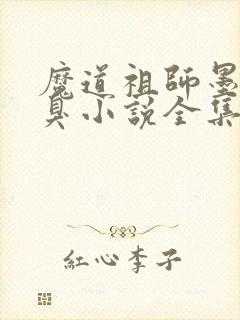 魔道祖師墨
臭小說全集
紅心李子